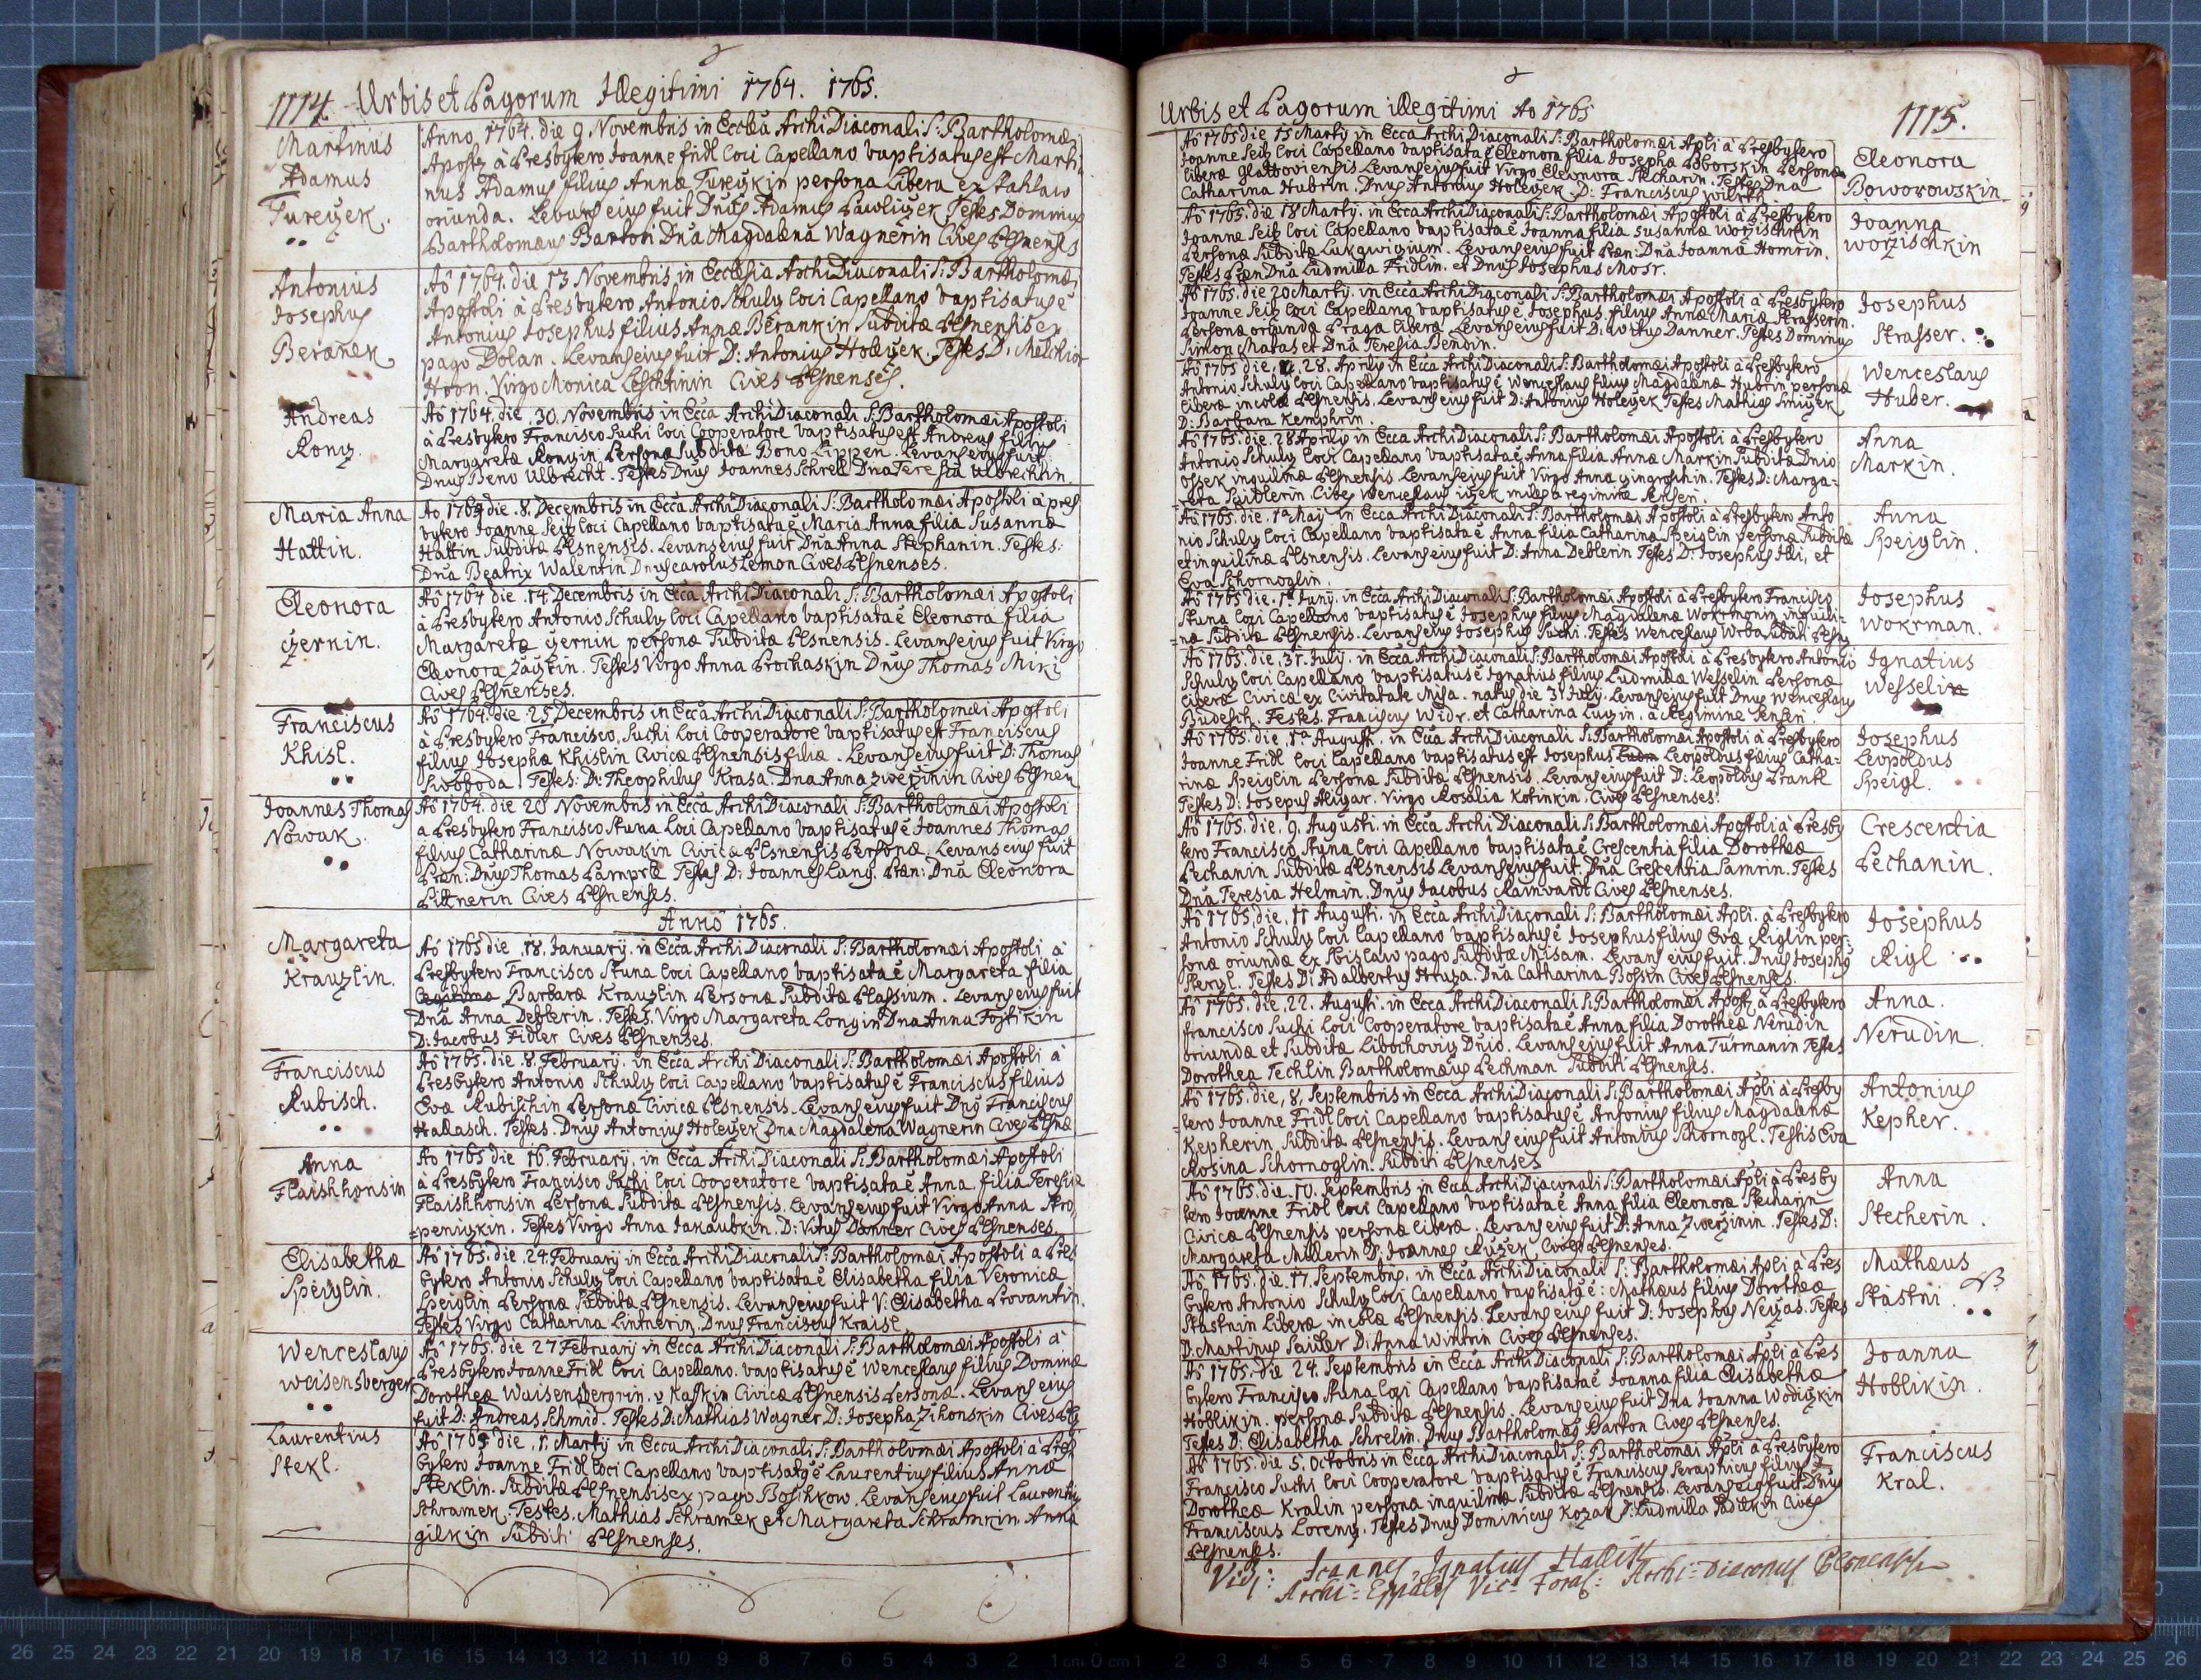 1114. Urbis et Pagorum Illegitimi 1764. 1765.
Martinus
Adamus
Tureczek.
Anno 1764. die 9. Novembris in Ecclea Archi Diaconali S: Bartholomæi
Apostz à Presbytero Joanne Fridl Loci Capellano baptisatus est Marti-
nus Adamus filius Annæ Tureczkin persona Libera ex Stahlaw
oriunda. Levans eius fuit Dnus Adamus Pawliczek Testes Dominus
Bartholomæus Barton Dna Magdalena Wagnerin Cives Plsnenses
Antonius
Josephus
Beranek
Aô 1764. die 13 Novembris in Ecclesia Archi Diaconali S: Bartholomæi
Apostoli à Presbytero Antonio Schulz Loci Capellano baptisatus ê
Antonius Josephus filius Annæ Berankin Subditæ Plsnensis ex
pago Dolan. Levans eius fuit D: Antonius Holeczek. Testes D: Melchior
Hoon. Virgo Monica Leschtinin Cives Plsnenses.
Andreas
Koniz.
Aô 1764. die 30. Novembris in Ecca Archi Diaconali S: Bartholomæi Apostoli
à Presbytero Francisco Suchi Loci Cooperatore baptisatus est Andreas filius
Margaretæ Konizin Personæ Subditæ Bono Lippen. Levans eius fuit
Dnus Beno Ulbrecht. Testes Dnus Joannes Schrell Dna Teresia Ulbrechtin
Maria Anna
Hattin.
Ao 1764 die 8. Decembris in Ecca Archi Diaconali S: Bartholomæi Apostoli à pres
bytero Joanne Seiz Loci Capellano baptisata ê Maria Anna filia Susannæ
Hattin Subditæ Plsnensis. Levans eius fuit Dna Anna Stephanin. Testes:
Dna Beatrix Walentin Dnus Carolus Lemon Cives Plsnenses.
Eleonora
Czernin.
Aô 1764 die 14. Decembris in Ecca Archi Diaconali S: Bartholomæi Apostoli
à Presbytero Antonio Schulz Loci Capellano baptisata ê Eleonora filia
Margaretæ Czernin personæ Subditæ Plsnensis. Levans eius fuit Virgo
Eleonora Zaiztin. Testes Virgo Anna Prochaskin Dnus Thomas Miki
Cives Plsnenses.
Franciscus
Khisl.
Aô 1764. die 25 Decembris in Ecca Archi Diaconali S: Bartholomæi Apostoli
à Presbytero Francisco Suchi Loci Cooperatore baptisatus est Franciscus
filius Josephæ Khislin Civicæ Plsnensis filiæ. Levans eius fuit D: Thomas
Swoboda. Testes: D: Theophilus Krasa. Dna Anna Zwerzinin Cives Plsnen
Joannes Thomas
Nowak.
Aô 1764. die 20 Novembris in Ecca Archi Diaconali S: Bartholomæi Apostoli
a Presbytero Francisco Stuna Loci Capellano baptisatus ê Joannes Thomas
filius Catharinæ Nowakin Civicæ Plsnensis Personæ. Levans eius fuit
Præn: Dnus Thomas Lamprle Testes D: Joannes Lang. Præn: Dna Eleonora
Pittnerin Cives Plsnenses.
Anno 1765.
Margareta
Krauzlin.
Aô 1765 die 18. January in Ecca Archi Diaconali S: Bartholomæi Apostoli à
Presbytero Francisco Stuna Loci Capellano baptisata ê Margareta filia
Barbaræ Krauzlin Personæ Subditæ Plassium. Levans eius fuit
Dna Anna Deblerin. Testes. Virgo Margareta Longin Dna Anna Fojtikin
D: Jacobus Fidler Cives Plsnenses.
Franciscus
Rubisch.
Aô 1765. die 8. February. in Ecca Archi Diaconali S: Bartholomæi Apostoli à
Presbytero Antonio Schulz Loci Capellano baptisatus ê Franciscus filius
Evæ Rubischin Personæ Civicæ Plsnensis. Levans eius fuit Dnus Franciscus
Hallasch. Testes. Dnus Antonius Holeczek Dna Magdalena Wagnerin Cives Plsne
Anna
Flaishhonsin
Ao 1765 die 16. February. in Ecca Archi Diaconali S: Bartholomæi Apostoli
à Presbytero Francisco Suchi Loci Cooperatore baptisata ê Anna filia Teresiæ
Flaishhonsin Personæ Subditæ Plsnensis. Levans eius fuit Virgo Anna Stro-
=penizkin. Testes Virgo Anna Jakaubkin. D: Vitus Danner Cives Plsnenses
Elisabetha
Speiglin.
Aô 1765. die 24. February in Ecca Archi Diaconali S: Bartholomæi Apostoli a Pres
bytero Antonio Schulz Loci Capellano baptisata ê Elisabetha filia Veronicæ
Speiglin Personæ Subditæ Plsnensis. Levans eius fuit V: Elisabetha Provantin.
Testes Virgo Catharina Lintnerin. Dnus Franciscus Kraisl
Wenceslaus
Waisensberger
Aô 1765. die 27 February in Ecca Archi Diaconali S: Bartholomæi Apostoli à
Presbytero Joanne Fridl Loci Capellano. baptisatus ê Wenceslaus filius Dominæ
Dorotheæ Waisensbergrin. v. Kaskin Civicæ Plsnensis Personæ. Levans eius
fuit D: Andreas Schmid. Testes D: Mathias Wagner D: Josepha Zihonskin Cives Pls
Laurentius
Stekl.
Aô 1765 die 1. Martij in Ecca Archi Diaconali S: Bartholomæi Apostoli à Pres
bytero Joanne Fridl Loci Capellano baptisatus ê Laurentius filius Annæ
Steklin. Subditæ Plsnensis ex pago Boschkow. Levans eius fuit Laurentius
Schramek. Testes. Mathias Schramek et Margareta Schramkin. Anna
gilekin Subditi Plsnenses.
Urbis et Pagorum illegitimi Ao 1765
1115.
Aô 1765 die 15 Martij in Ecca Archi Diaconali S: Bartholomæi Apli à Presbytero
Joanne Seiz Loci Capellano baptisata ê Eleonora filia Josepha Boborskin Personæ
liberæ Glattoviensis Levans eius fuit Virgo Eleonora Stecharin. Testes Dna
Catharina Hubrin. Dnus Antonius Holeczek. D: Franciscus Wirth
Eleonora
Boworowskin
Aô 1765. die 18 Martij. in Ecca Archi Diaconali S: Bartholomæi Apostoli à Presbytero
Joanne Seiz Loci Capellano baptisata ê Joanna filia Susannæ Worzischkin
Personæ Subditæ Lukawizium. Levans eius fuit Præn: Dna Joanna Homrin.
Testes Præn Dna Ludmilla Fridlin. et Dnus Josephus Mosr.
Joanna
Worzischkin
Aô 1765. die 20 Martij. in Ecca Archi Diaconali S: Bartholomæi Apostoli à Presbytero
Joanne Seiz Loci Capellano baptisatus ê Josephus filius Annæ Mariæ Strasserin.
Personæ oriunda Praga libera. Levans eius fuit D: Vitus Danner. Testes Dominus
Simon Matas et Dna Teresia Bendin.
Josephus
Strasser.
Aô 1765 die 28. Aprilis in Ecca Archi Diaconali S: Bartholomæi Apostoli à Presbytero
Antonio Schulz Loci Capellano baptisatus ê Wenceslaus filius Magdalenæ Hubrin personæ
liberæ incolæ Plsnensis. Levans eius fuit D: Antonius Holeczek Testes Mathias Smiczek
D: Barbara Kemphrin.
Wenceslaus
Huber.
Aô 1765. die. 28 Aprilis in Ecca Archi Diaconali S: Bartholomæi Apostoli à Presbytero
Antonio Schulz Loci Capellano baptisata ê Anna filia Annæ Markin Subditæ Dnio
Ossek inquilinæ Plsnensis. Levans eius fuit Virgo Anna Gingrschin. Testes D: Marga-
=reta Saidlerin. Cives Wenceslaus Cizek miles a regimine Sensen.
Anna
Markin.
Aô 1765. die. 1ª Maij in Ecca Archi Diaconali S: Bartholomæi Apostoli à Presbytero Anto
nio Schulz Loci Capellano baptisata ê Anna filia Catharinæ Speiglin personæ Subditæ
et inquilinæ Plsnensis. Levans eius fuit D: Anna Deblerin Testes D: Josephus Illi, et
Eva Schornoglin.
Anna
Speiglin.
Aô 1765 die. 1ª Junij. in Ecca Archi Diaconali S: Bartholomæi Apostoli à Presbytero Francisco
Stuna Loci Capellano baptisatus ê Josephus filius Magdalenæ Wokrmonin inquili-
=næ Subditæ Plsnensis. Levans eius Josephus Suchi. Testes Wenceslaus Wrba Subditi Plsn
Josephus
Wokrman.
Aô 1765. die. 31. July. in Ecca Archi Diaconali S: Bartholomæi Apostoli à Presbytero Antonio
Schulz Loci Capellano baptisatus ê Ignatius filius Ludmilla Wesselin Personæ
liberæ Civica ex Civitatate Misa. natus die 31 July. Levans eius fuit Dnus Wenceslaus
Budesch. Testes. Franciscus Widr. et Catharina Luzin. à Regimine Sensen.
Ignatius
Wesselin
Aô 1765. die. 1ª Augusti. in Ecca Archi Diaconali S: Bartholomæi Apostoli à Presbytero
Joanne Fridl Loci Capellano baptisatus est Josephus Leopoldus filius Catha-
rinæ Speiglin Personæ Subditæ Plsnensis. Levans eius fuit D: Leopoldus Prantl
Testes D: Josepus Aligar. Virgo Rosalia Kotinkin. Cives Plsnenses.
Josephus
Leopoldus
Speigl.
Aô 1765. die. 9. Augusti. in Ecca Archi Diaconali S: Bartholomæi Apostoli à Presby
tero Francisco Stuna Loci Capellano baptisata ê Crescentia filia Dorotheæ
Pechanin Subditæ Plsnensis Levans eius fuit. Dna Crescentia Samrin. Testes
Dna Teresia Helmin. Dnus Jacobus Rainvardt Cives Plsnenses.
Crescentia
Pechanin.
Aô 1765. die. 11 Augusti. in Ecca Archi Diaconali S: Bartholomæi Apli. à Presbytero
Antonio Schulz Loci Capellano baptisatus ê Josephus filius Evæ Riglin per-
sonæ oriundæ ex Sbislaw pago Subditæ Misam. Levans eius fuit. Dnus Josephus
Sterzl. Testes D: Adalbertus Hruza. Dna Catharina Bossin Cives Plsnenses.
Josephus
Rigl
Aô 1765. die. 22. Augusti. in Ecca Archi Diaconali S: Bartholomæi Apostz à Presbytero
Francisco Suchi Loci Cooperatore baptisata ê Anna filia Dorotheæ Nerudin
oriundæ et Subditæ Libochoviz Dnio. Levans eius fuit Anna Turmanin Testes
Dorothea Techlin Bartholomæus Pechman Subditi Plsnensis.
Anna.
Nerudin.
Aô 1765. die, 8, Septembris in Ecca Archi Diaconali S: Bartholomæi Apli à Presby
tero Joanne Fridl Loci Capellano baptisatus ê Antonius filius Magdalenæ
Kepherin Subditæ Plsnensis. Levans eius fuit Antonius Schornogl. Testis Eva
Rosina Schornoglin. Subditi Plsnenses
Antonius
Kepher.
Aô 1765. die. 10. Septembris in Ecca Archi Diaconali S: Bartholomæi Apli à Presby
tero Joanne Fridl Loci Capellano baptisata ê Anna filia Eleonoræ Stecharin
Civicæ Plsnensis personæ liberæ. Levans eius fuit D: Anna Zwerzinin. Testes D:
Margareta Millerin D: Joannes Ruzek Cives Plsnenses.
Anna
Stecherin.
Aô 1765. die. 17. Septembris. in Ecca Archi Diaconali S: Bartholomæi Apli à Pres
bytero Antonio Schulz Loci Capellano baptisatus ê: Mathæus filius Dorotheæ
Stastnin Liberæ incolæ Plsnensis. Levans eius fuit D: Josephus Neizas. Testes
D: Martinus Saidler D: Anna Wintrin Cives Plsnenses.
Mathæus
Stastni.
Aô 1765. die 24. Septembris in Ecca Archi Diaconali S: Bartholomæi Apli à Pres
bytero Francisco Stuna Loci Capellano baptisata ê Joanna filia Elisabethæ
Hoblikin. personæ Subditæ Plsnensis. Levans eius fuit Dna Joanna Wodizkin
Testes D: Elisabetha Schrelin. Dnus Bartholomæus Barton Cives Plsnenses.
Joanna
Hoblikin.
Aô 1765. die 5. Octobris in Ecca Archi Diaconali S: Bartholomæi Apli à Presbytero
Francisco Suchi Loci Cooperatore baptisatus ê Franciscus Seraphicus filius
Dorotheæ Kralin persona inquilina Subditæ Plsnensis. Levans eius fuit Dnus
Franciscus Lorenz. Testes Dnus Dominicus Kozak D: Ludmilla Sadilkin Cives
Plsnenses.
Franciscus
Kral.
Vidi: Joannes Ignatius
Archi= Vic: Foran: Archi=Diaconus